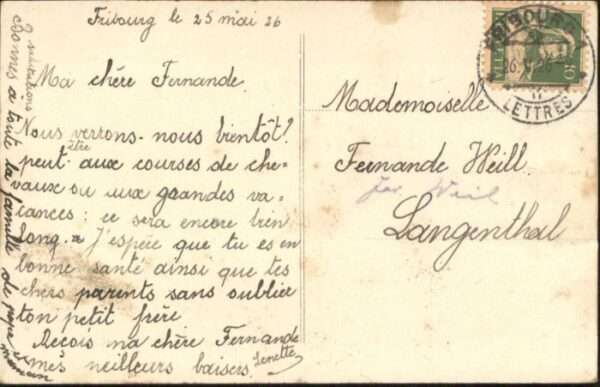 Fribourg le 25 mai 26
Ma chère Fernande.
Nous verrons-nous bientôt?
peut être aux courses de che-
vaux ou aux grandes va-
cances; ce sera encore bien
long. J'espère que tu es en
bonne santé ainsi que tes
chers parents sans oublier
ton petit frère
Reçois ma chère Fernande
mes meilleurs baisers. Lenette
Bonnes salutations
à toute la famille de papa et
maman
Mademoiselle
Fernande Weill
Weil
Langenthal
FRIBOURG
LETTRES
HELVETIA
10